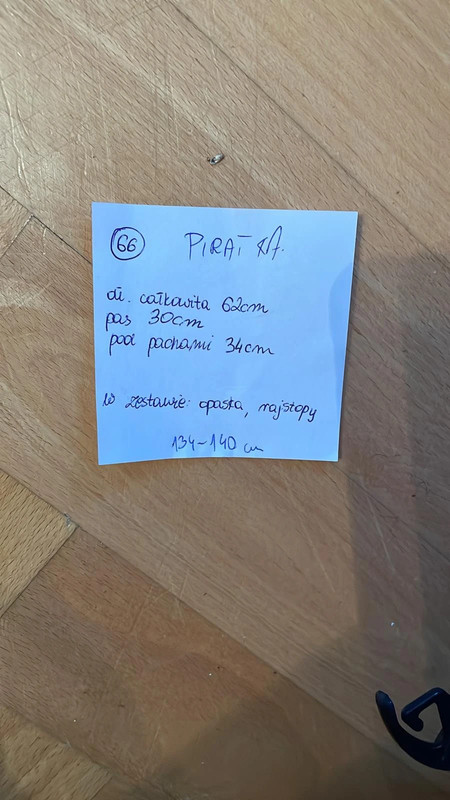 66 PIRATKA.
dł. całkowita 62cm
pas 30cm
pod pachami 34cm
w zestawie: opaska, rajstopy
134-140 cm